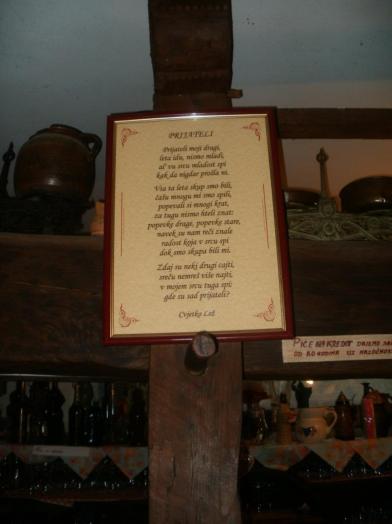 PRIJATELI
Prijateli moji dragi,
leta idu, nismo mladi,
al' vu srcu mladost spi
kak da nigdar prošla ni.
Vsa ta leta skup smo bili,
čašu mnogu mi smo spili,
popevali si mnogi krat,
za tugu nismo hteli znat:
popevke drage, popevke stare,
navek su nam reči znale
radost koja v srcu spi
dok smo skupa bili mi.
Zdaj su neki drugi cajti,
sreču nemreš više najti,
v mojem srcu tuga spi:
gde su sad prijateli?
Cvjetko Lež
PIĆE NA KREDIT DAJEMO SAMO
OD 80 GODINA UZ NAZOČNOST